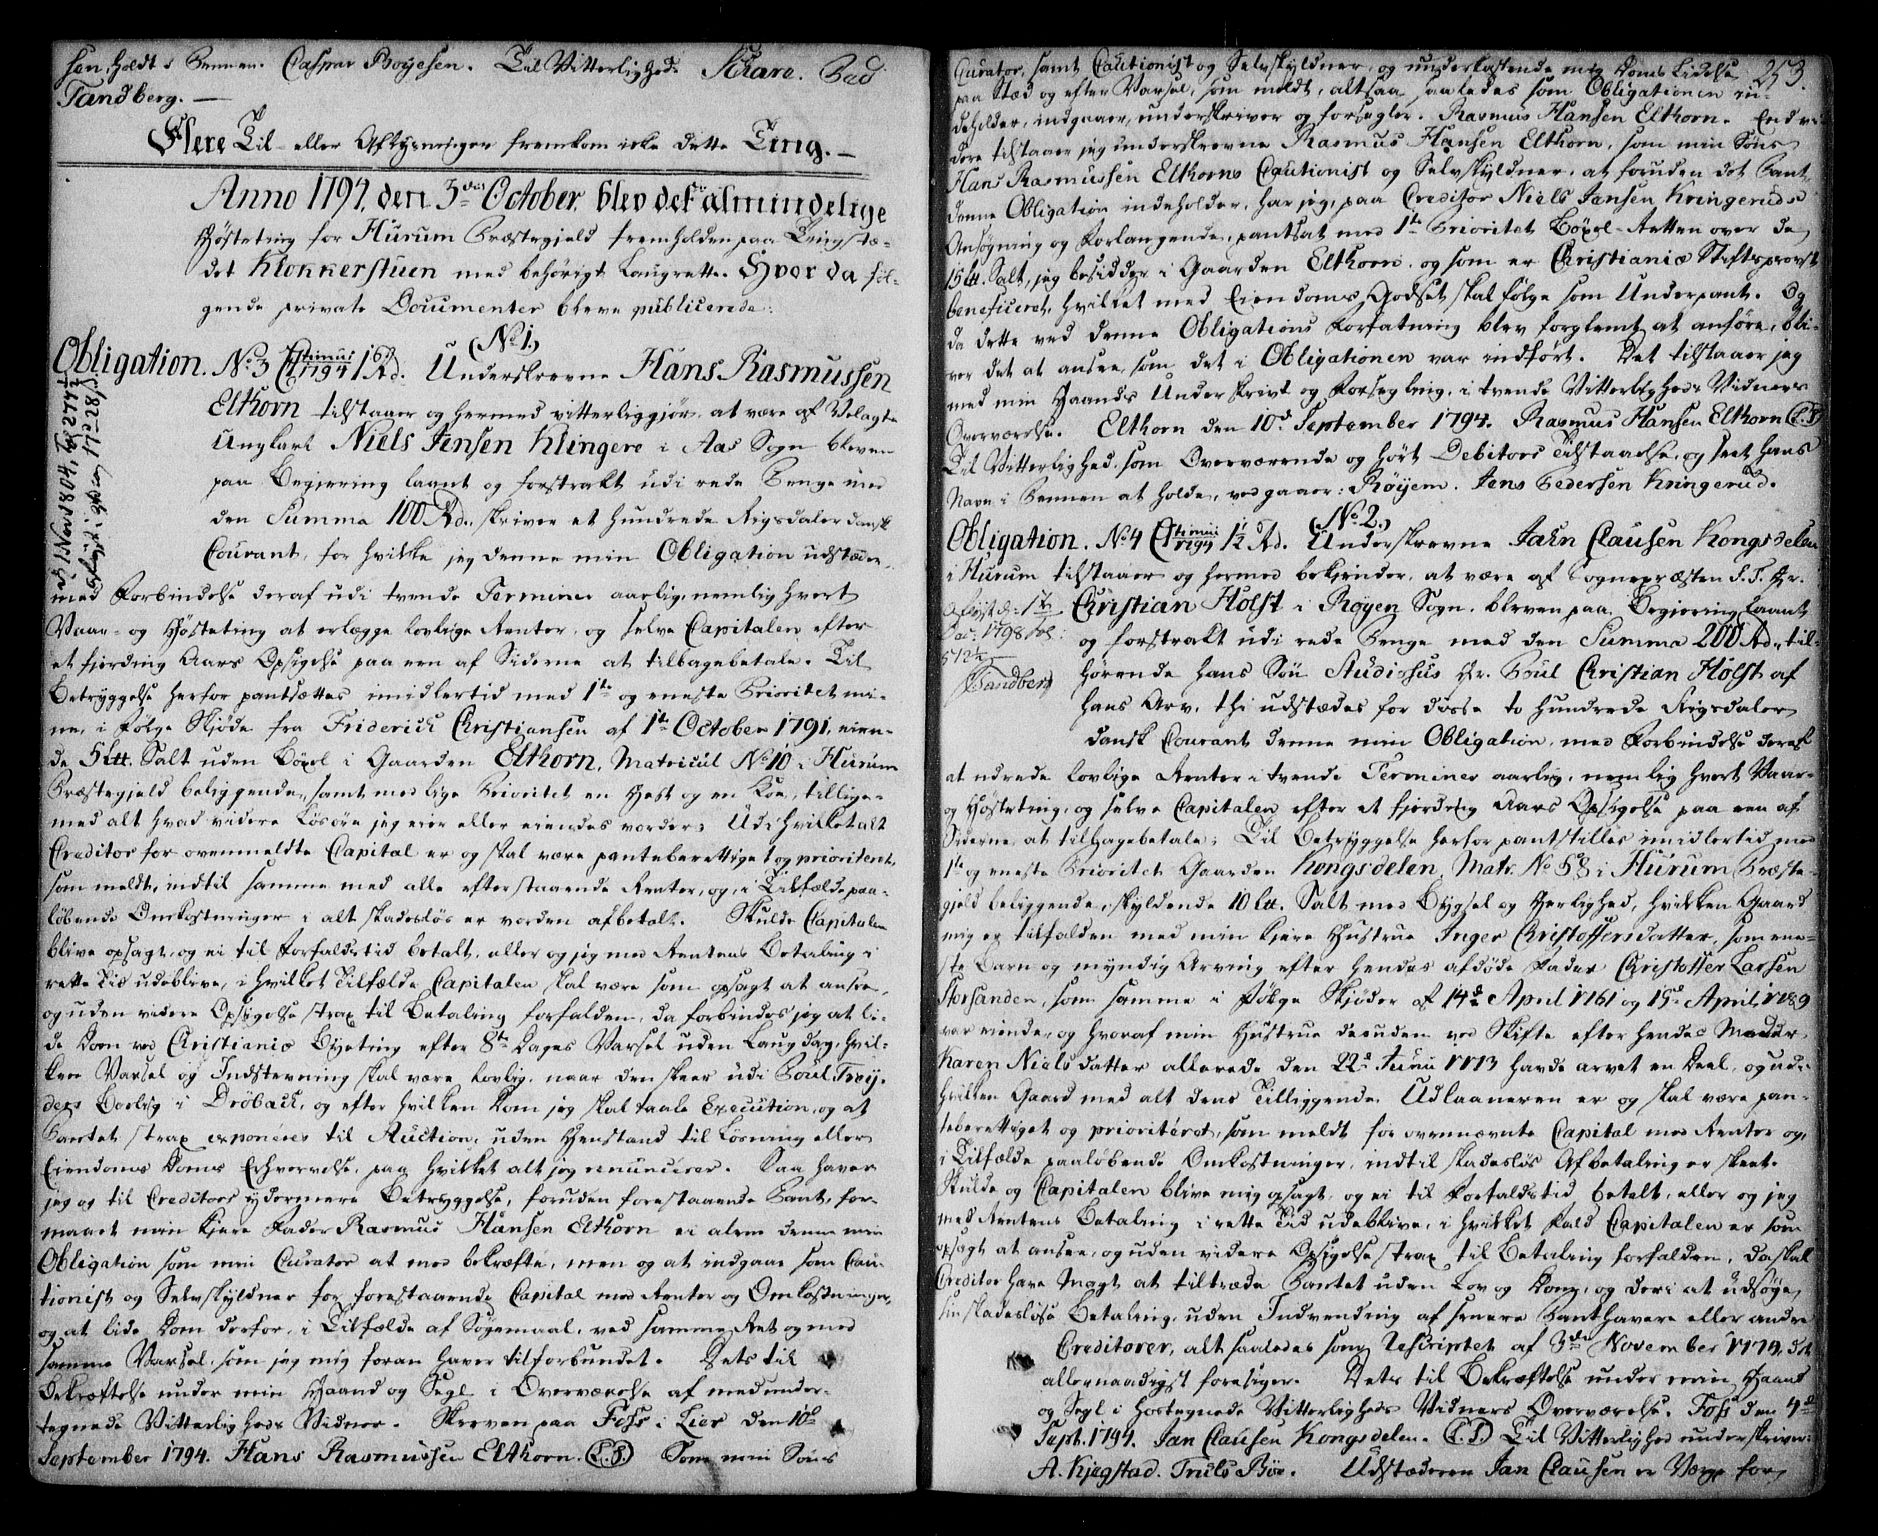 sen, holdt i Pennen. Caspar Boyesen. Til Vitterlighed: Skare. Bad
Tandberg. —
Flere Til- eller Aflysninger fremkom icke dette Ting. —
Anno 1794, den 3die October, blev det almindelige
Høsteting for Hurum Præstegjeld fremholden paa Tingstæ-
det Klokkerstuen med behørigt Laugrette. Hvor da føl-
gende private Documenter bleve publicerede:
(No 1.)
Obligation. No 3 Underskrevne Hans Rasmussen
Elthorn tilstaaer og hermed vitterliggiør, at være af Velagte
Ungkarl Niels Jensen Klingere i Aas Sogn bleven
paa Begiering laant og forstrakt udi rede Penge med
den Summa 100 Rd., skriver et hundrede Rigsdaler dansk
Courant, for hvilke jeg denne min Obligation udstæder,
med Forbindelse deraf udi tvende Terminer aarlig, nemlig hvert
Vaar- og Høsteting at erlægge lovlige Renter, og selve Capitalen efter
et fjerding Aars Opsigelse paa een af Siderne at tilbagebetale. Til
Betryggelse herfor pantsættes imidlertid med 1te og eneste Prioritet mi-
ne, i Følge Skjøde fra Friderich Christiansen af 1te October 1791, eien-
de 5 Ltt. Salt uden Bøxel i Gaarden Elthorn, Matricul No 10 i Hurum
Præstegjeld beliggende, samt med lige Prioritet en Hest og en Koe, tillige-
med alt hvad videre Løsøre jeg eier eller eiendes vorder; Udi hvilket alt
Creditor for ovenmeldte Capital er og skal være panteberettiget og prioriteret,
som meldt, indtil samme med alle efterstaaende Renter, og, i Tilfælde paa-
løbende Omkostninger i alt skadesløs er vorden afbetalt. Skulde Capitalen
blive opsagt, og ei til Forfaldstid betalt, eller og jeg med Rentens Betaling i
rette Tid udeblive, i hvilket Tilfælde Capitalen skal være som opsagt at ansee,
og uden videre Opsigelse strax til Betaling forfalden, da forbindes jeg at li-
de Dom ved Christianiæ Byeting efter 8te Dages Varsel uden Laugdag, hvil-
ken Varsel og Indstevning skal være lovlig, naar den skeer udi Poul Trøy-
ders Bolig i Drøbach, og efter hvilken Dom jeg skal taale Execution, og at
Pantet strax exponeres til Auction, uden Henstand til Løsning eller
Eiendoms Doms Erhvervelse, paa hvilket alt jeg renuncerer. Saa haver
jeg og til Creditors ydermere Betryggelse, foruden forestaaende Pant, for-
maaet min kjere Fader Rasmus Hansen Elthorn ei alene denne min
Obligation som min Curator at med bekræfte, men og at indgaae som Cau-
tionist og Selvskyldner for forestaaende Capital med Renter og Omkostninger,
og at lide Dom derfor, i Tilfælde af Søgemaal, ved samme Ret og med
samme Varsel, som jeg mig foran haver tilforbundet. Dets til
Bekræftelse under min Haand og Segl i Overværelse af med under-
tegnede Vitterligheds Vidner. Skreven paa Foss i Lier den 10de
September 1794. Hans Rasmussen Elthorn. (L.S.) Som min Søns
253.
Curator, samt Cautionist og Selvskyldner, og underkastende mig Doms Lidelse
paa Sted og efter Varsel, som meldt, altsaa, saaledes som Obligationen in-
deholder, indgaaer, underskriver og forsegler. Rasmus Hansen Elthorn. End vi-
dere tilstaaer jeg underskrevne Rasmus Hansen Elthorn, som min Søns
Hans Rasmussen Elthorns Cautionist og Selvskyldner, at foruden det Pant,
denne Obligation indeholder, har jeg, paa Creditor Niels Jensen Kringeruds
Ansøgning og Forlangende, pantsat med 1te Prioritet Bøxel-Retten over de
15 Ltt. Salt, jeg besidder i Gaarden Elthorn, og som er Christianiæ Stiftsprovst
beneficeret, hvilket med Eiendoms Godset skal følge som Underpant. Og
da dette ved denne Obligations Forfatning blev forglemt at anføre, bli-
ver det at ansee, som det i Obligationen var indført. Det tilstaaer jeg
med min Haands Underskrivt og Forsegling, i tvende Vitterligheds Vidners
Overværelse. Elthorn den 10de September 1794. Rasmus Hansen Elthorn (L.S.)
Til Vitterlighed, som Overværende og hørt Debitors Tilstaaelse, og seet hans
Navn i Pennen at holde, vedgaaer: Røyem. Jens Pedersen Kringerud.
(No 2.)
Obligation. No 4 1½ Rd. Underskrevne Jahn Clausen Kongsdelen
i Hurum tilstaaer og hermed bekiender, at være af Sognepræsten S.T. Hr.
Christian Holst i Røyen Sogn, bleven paa Begiering laant
og forstrakt udi rede Penge med den Summa 200 Rd., til-
hørende hans Søn Studiosus Hr. Poul Christian Holst af
hans Arv, thi udstædes for disse to hundrede Rigsdaler
dansk Courant denne min Obligation, med Forbindelse deraf
at udrede lovlige Renter i tvende Terminer aarlig, nemlig hvert Vaar-
og Høsteting, og selve Capitalen efter et fjerding Aars Opsigelse paa een af
Siderne at tilbagebetale; Til Betryggelse herfor pantstilles imidlertid med
1te og eneste Prioritet Gaarden Kongsdelen, Matr. No 58 i Hurum Præste-
gjeld beliggende, skyldende 10 Ltt. Salt med Bygsel og Herlighed, hvilken Gaard
mig er tilfalden med min kjere Hustrue Inger Christoffersdatter, som ene-
ste Barn og myndig Arving efter hendes afdøde Fader Christoffer Larsen
Storsanden, som samme i Følge Skjøder af 14de April 1761 og 15de April 1789
var eiende, og hvoraf min Hustrue desuden ved Skifte efter hendes Moder
Karen Nielsdatter allerede den 22de Junii 1773 havde arvet en Deel, og udi
hvilken Gaard med alt dens Tilliggende Udlaaneren er og skal være pan-
teberettiget og prioriteret, som meldt for ovennævnte Capital med Renter og,
i Tilfælde paaløbende Omkostninger, indtil skadesløs Afbetaling er skeet.
Skulde og Capitalen blive mig opsagt, og ei til Forfaldstid betalt, eller og jeg
med Rentens Betaling i rette Tid udeblive, i hvilket Fald Capitalen er som
opsagt at ansee, og uden videre Opsigelse strax til Betaling forfalden, da skal
Creditor have Magt at tiltræde Pantet uden Lov og Dom, og deri at udsøge
sin skadesløse Betaling, uden Indvending af senere Panthavere eller andre
Creditorer, alt saaledes som Rescriptet af 3die November 1779, det
allernaadigst foresiger. Dets til Bekræftelse under min Haand
og Segl i hostegnede Vitterligheds Vidners Overværelse. Foss den 4de
Sept. 1794. Jan Clausen Kongsdelen. (L.S.) Til Vitterlighed underskriver:
A. Kjegstad. Truls Böe. Udstæderen Jan Clausen er Værge for